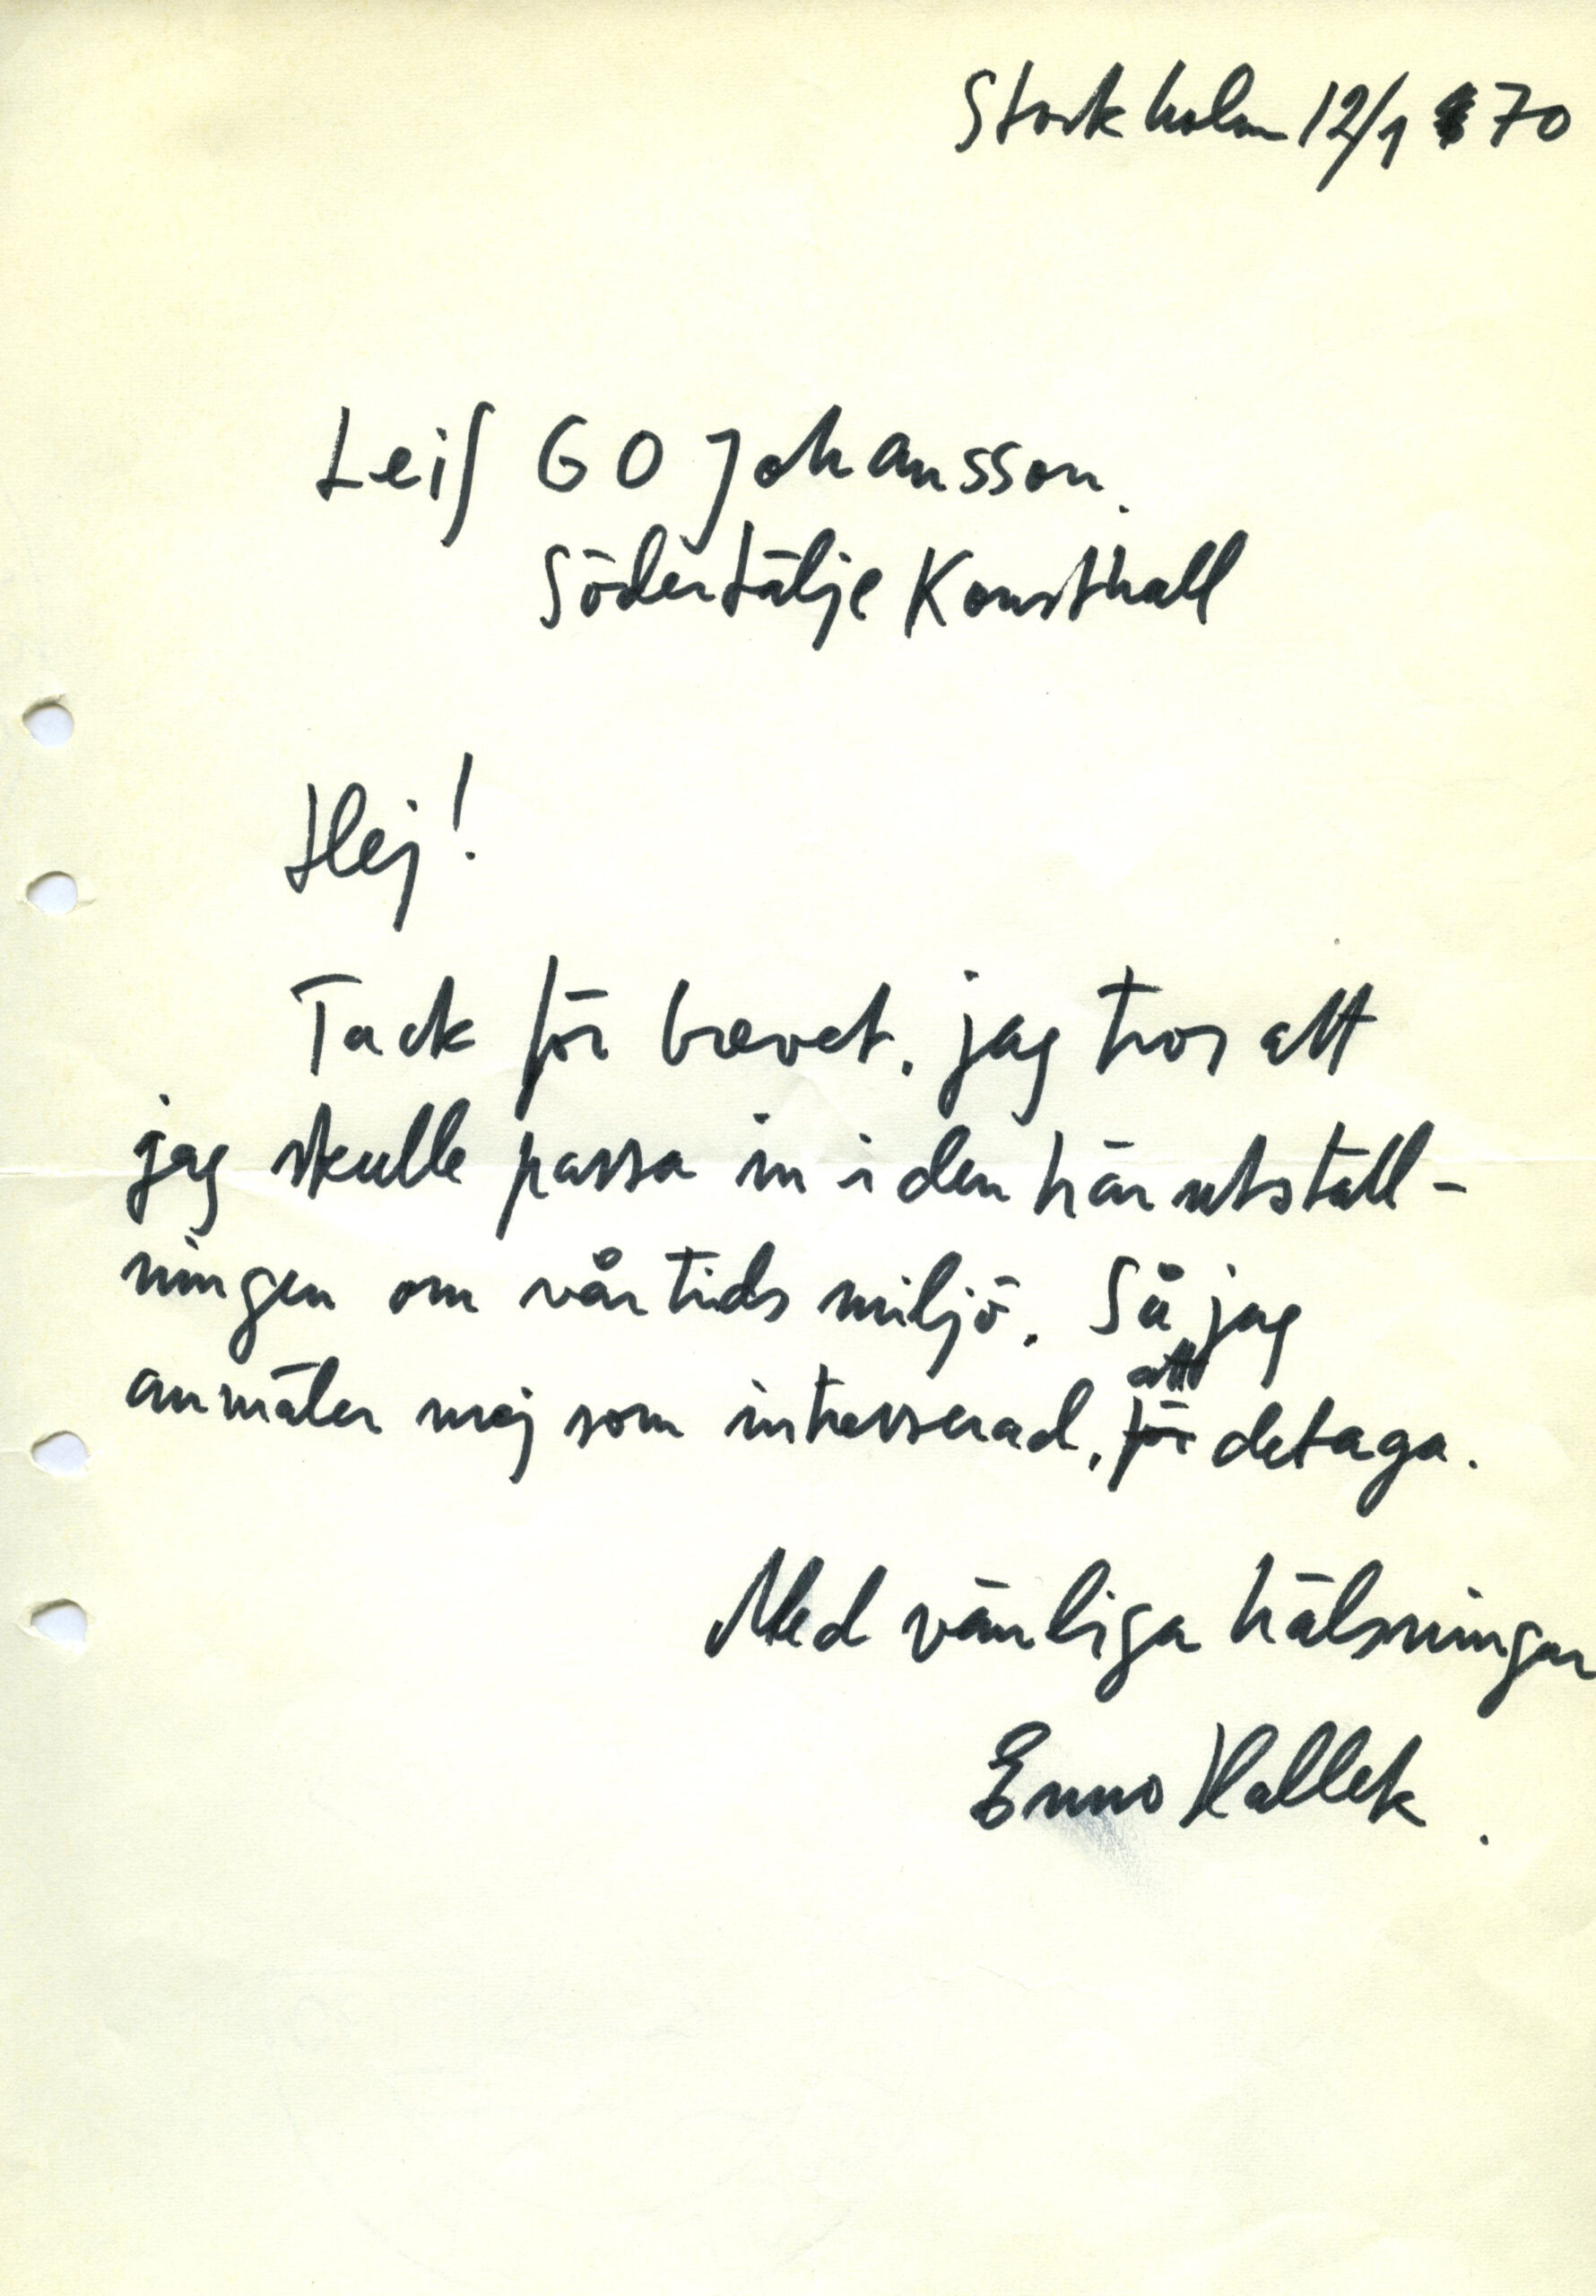 Stockholm 12/1 70
Leif GO Johansson.
Södertälje Konsthall
Hej!
Tack för brevet. jag tror att
jag skulle passa in i den här utställ-
ningen om vår tids miljö. Så jag
anmäler mej som intresserad, att detaga.
Med vänliga hälsningar
Enno Hallek.